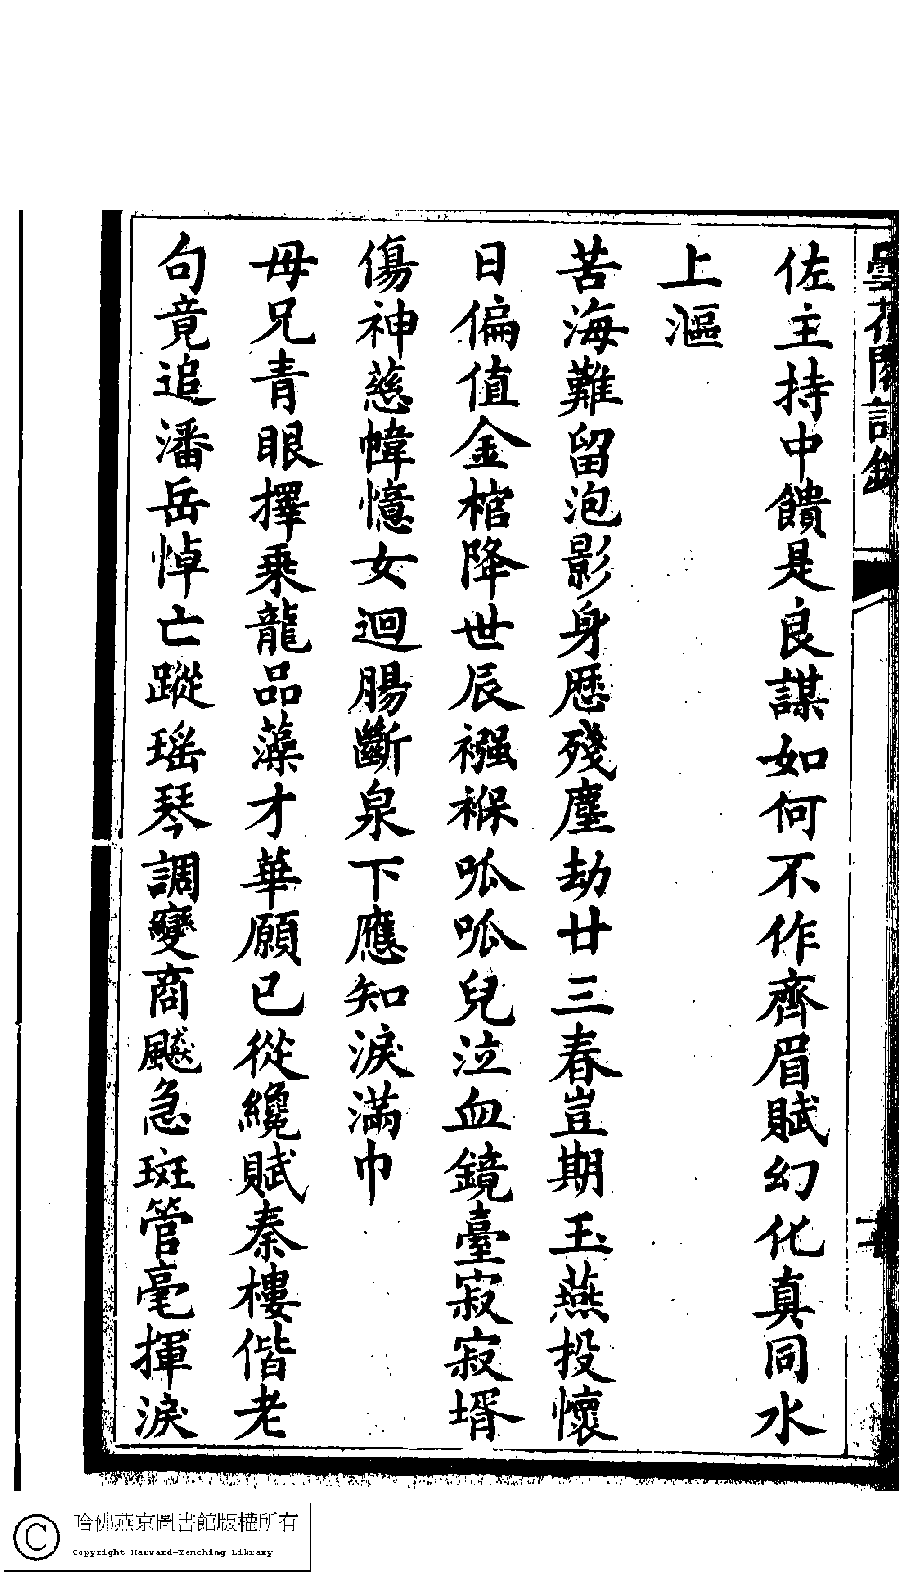 佐主持中饋是良謀如何不作齊眉賦幻化真同水
上漚
苦海難留泡影身歷殘塵劫廿三春豈期玉燕投懷
日偏值金棺降世辰襁褓呱呱兒泣血鏡臺寂寂壻
傷神慈幃憶女迴腸斷泉下應知淚滿巾
母兄青眼擇乘龍品藻才華願已從纔賦秦樓偕老
句竟追潘岳悼亡蹤瑤琴調變商飈急斑管毫揮淚
哈佛燕京圖書館版權所有
Copyright Harvard-Yenching Library